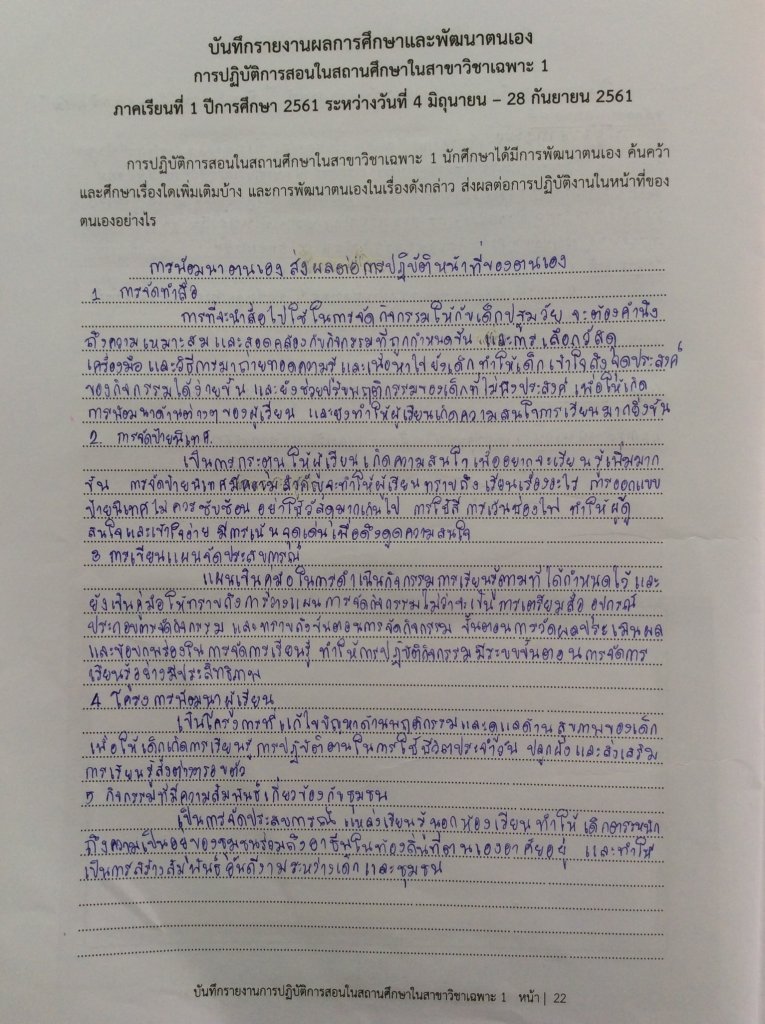 บันทึกรายงานผลการศึกษาและพัฒนาตนเอง
การปฏิบัติการสอนในสถานศึกษาในสาขาวิชาเฉพาะ 1
ภาคเรียนที่ 1 ปีการศึกษา 2561 ระหว่างวันที่ 4 มิถุนายน – 28 กันยายน 2561
การปฏิบัติการสอนในสถานศึกษาในสาขาวิชาเฉพาะ 1 นักศึกษาได้มีการพัฒนาตนเอง ค้นคว้า
และศึกษาเรื่องใดเพิ่มเติมบ้าง และการพัฒนาตนเองในเรื่องดังกล่าว ส่งผลต่อการปฏิบัติงานในหน้าที่ของ
ตนเองอย่างไร
การพัฒนาตนเอง ส่งผลต่อการปฏิบัติหน้าที่ของตนเอง
1 การจัดทำสื่อ
การที่จะนำสื่อไปใช้ในการจัดกิจกรรมให้กับเด็กปฐมวัย จะต้องคำนึง
ถึงความเหมาะสม และสอดคล้องกับกิจกรรมที่ถูกกำหนดขึ้น และการเลือกวัสดุ
เครื่องมือ และวิธีการมาถ่ายทอดความรู้และเนื้อหาไปยังเด็ก ทำให้เด็กเข้าใจถึงจุดประสงค์
ของกิจกรรมได้ง่ายขึ้น และยังช่วยปรับพฤติกรรมของเด็กที่ไม่พึงประสงค์ เพื่อให้เกิด
การพัฒนาด้านต่างๆของผู้เรียน และยังทำให้ผู้เรียนเกิดความสนใจการเรียนมากยิ่งขึ้น
2. การจัดป้ายนิเทศ.
เป็นการกระตุ้นให้ผู้เรียนเกิดความสนใจ เพื่ออยากจะเรียนรู้เพิ่มมาก
ขึ้น การจัดป้ายนิเทศมีความสำคัญจะทำให้ผู้เรียนทราบถึงเรียนเรื่องอะไร การออกแบบ
ป้ายนิเทศไม่ควรซับซ้อน อย่าใช้วัสดุมากเกินไป การใช้สี การเว้นช่องไฟ ทำให้ผู้ดู
สนใจและเข้าใจง่าย มีการเน้นจุดเด่นเพื่อดึงดูดความสนใจ
3 การเขียนแผนจัดประสบการณ์
แผนเป็นคู่มือในการดำเนินกิจกรรมการเรียนรู้ตามที่ได้กำหนดไว้ และ
ยังเป็นคู่มือให้ทราบถึงการวางแผนการจัดกิจกรรมไม่ว่าจะเป็นการเตรียมสื่อ อุปกรณ์
ประกอบการจัดกิจกรรม และทราบถึงขั้นตอนการจัดกิจกรรม ขั้นตอนการวัดผลประเมินผล
และข้อบกพร่องในการจัดการเรียนรู้ ทำให้การปฏิบัติกิจกรรมมีระบบขั้นตอนการจัดการ
เรียนรู้อย่างมีประสิทธิภาพ
4 โครงการพัฒนาผู้เรียน
เป็นโครงการที่แก้ไขปัญหาด้านพฤติกรรมและดูแลด้านสุขภาพของเด็ก
เพื่อให้เด็กเกิดการเรียนรู้การปฏิบัติตนในการใช้ชีวิตประจำวัน ปลูกฝังและส่งเสริม
การเรียนรู้สิ่งต่างๆรอบตัว
5 กิจกรรมที่มีความสัมพันธ์เกี่ยวข้องกับชุมชน
เป็นการจัดประสบการณ์ แหล่งเรียนรู้นอกห้องเรียนทำให้เด็กตระหนัก
ถึงความเป็นอยู่ของชุมชนรวมถึงอาชีพในท้องถิ่นที่ตนเองอาศัยอยู่ และทำให้
เป็นการสร้างสัมพันธ์อันดีงามระหว่างเด็กและชุมชน
บันทึกรายงานการปฏิบัติการสอนในสถานศึกษาในสาขาวิชาเฉพาะ 1 หน้า | 22